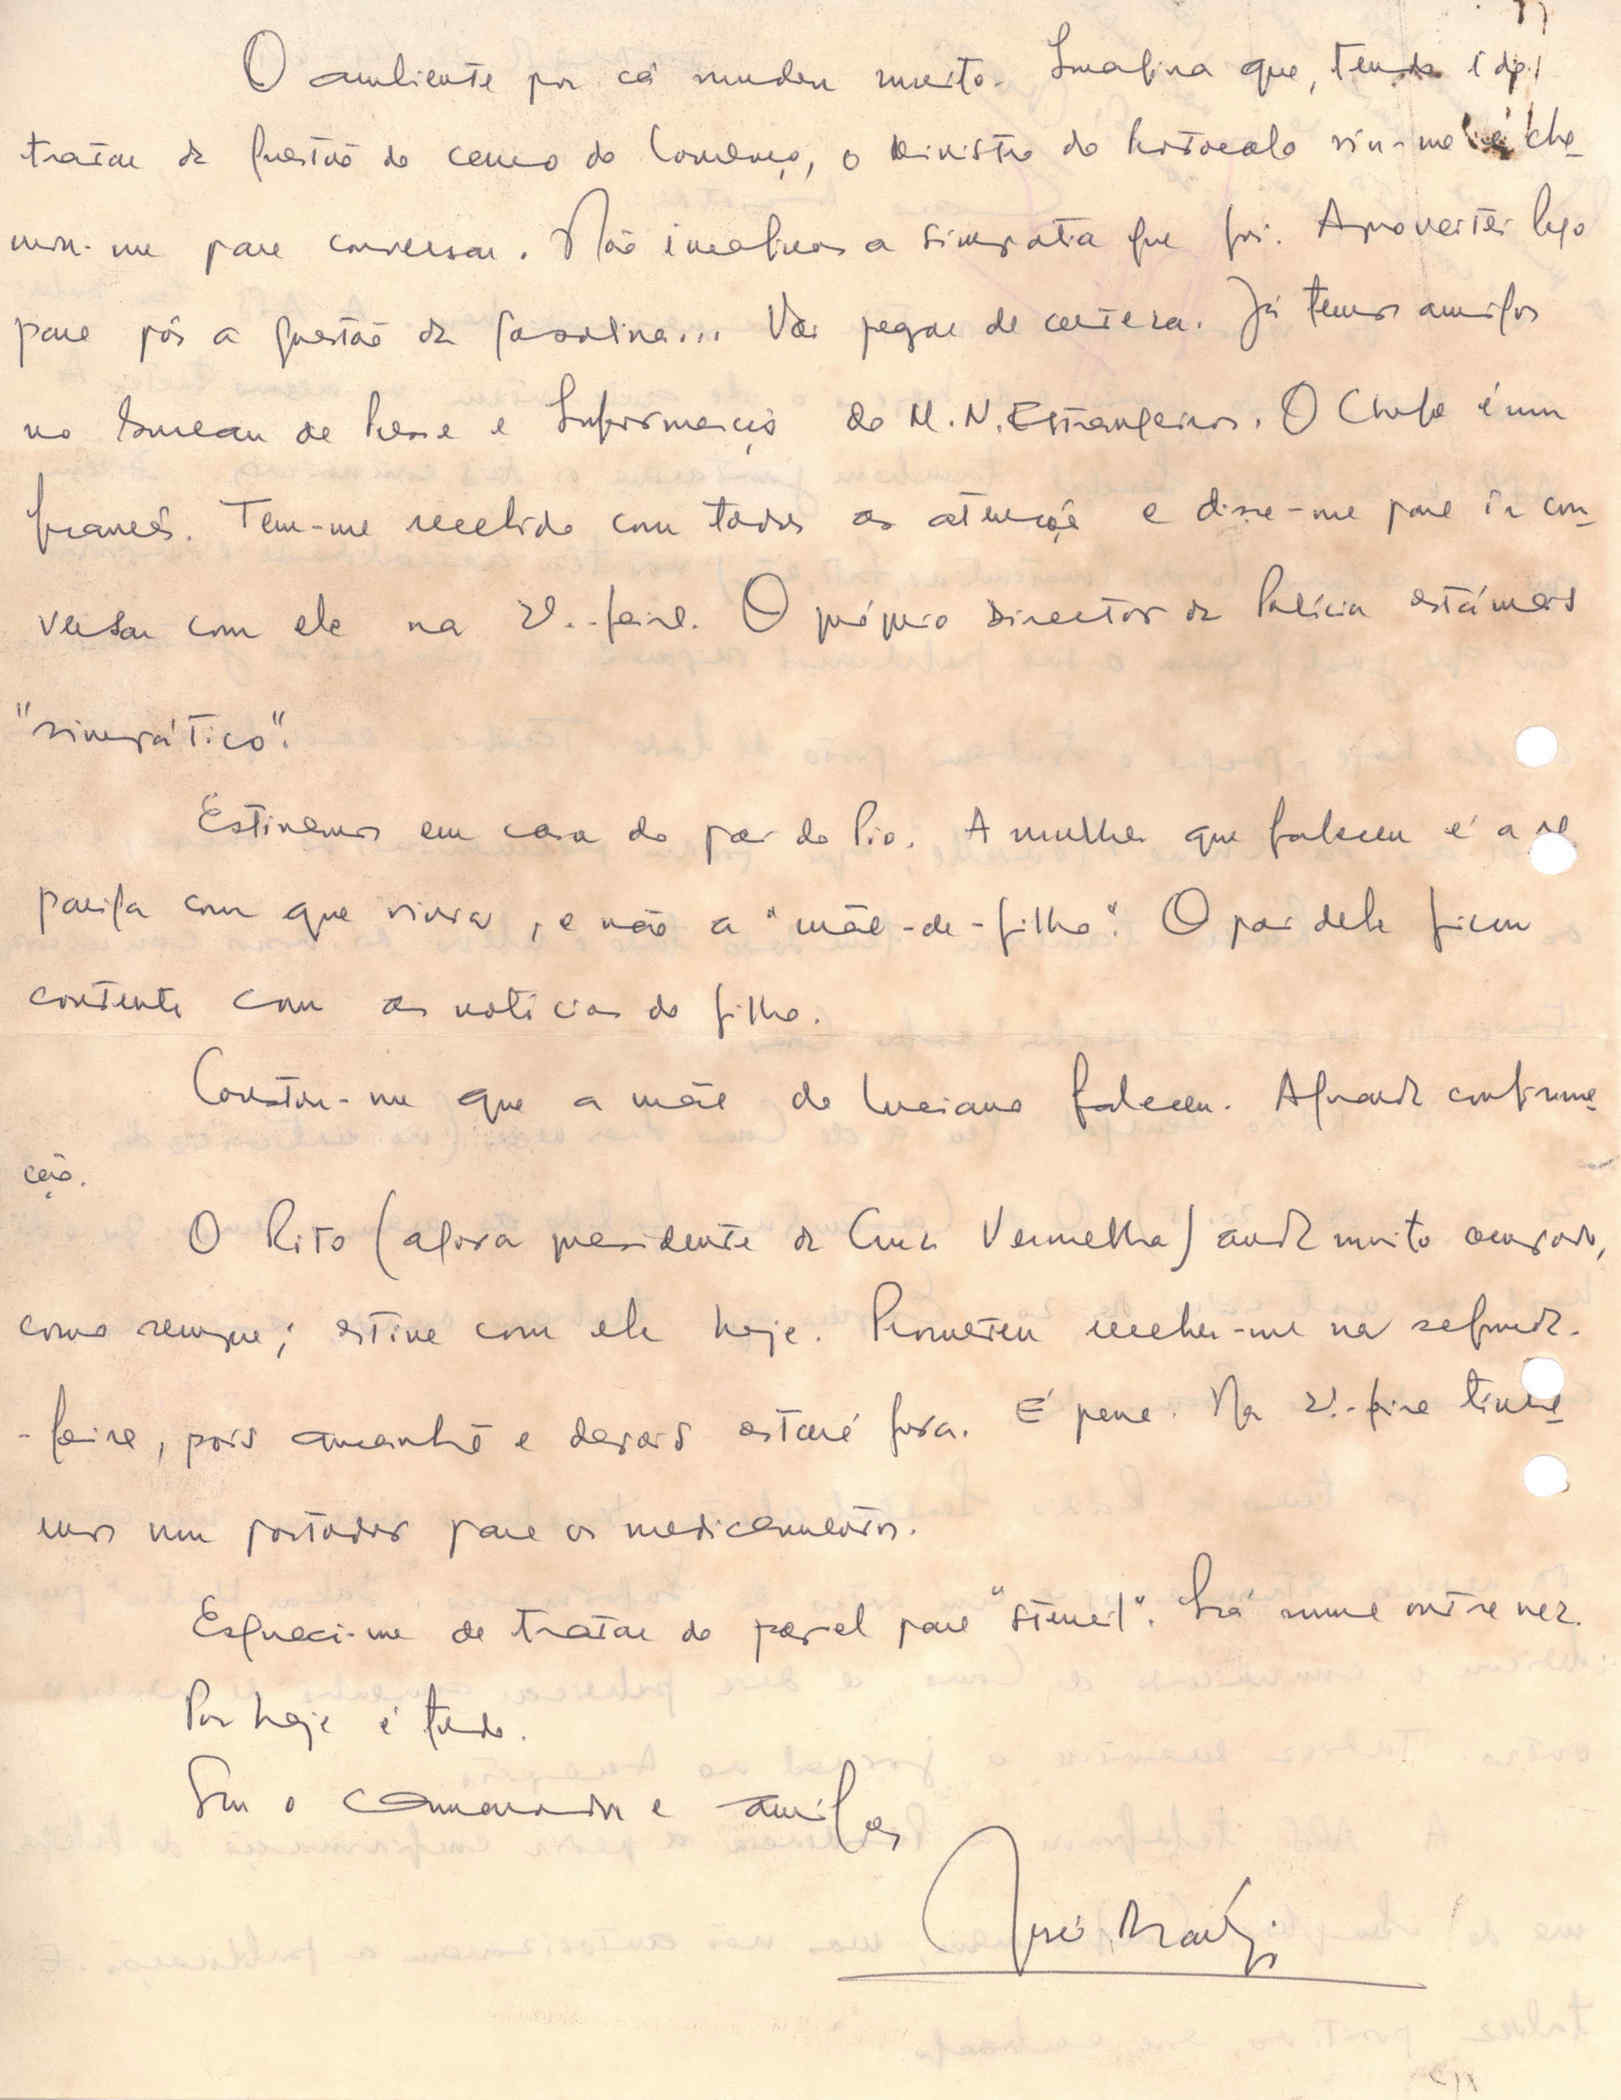 O ambiente por cá mudou muito. Imagina que, tendo ido
tratar da questão do carro do Lourenço, o Ministro do Protocolo viu-me e cha-
mou-me para conversar. Não imaginas a simpatia que foi. Aproveitei logo
para pôr a questão da gasolina... Vai pegar de certeza. Já temos amigos
no Bureau de Presse e Informação do M.N.Estrangeiros. O Chefe é um
francês. Tem-me recebido com todas as atenções e disse-me para ir con-
versar com ele na 2ª.-feira. O próprio Director da Polícia está mais
"simpático".
Estivemos em casa do pai do Pio. A mulher que faleceu é a ra
pariga com que vivia, e não a "mãe-de-filho". O pai dele ficou
contente com as notícias do filho.
Constou-me que a mãe do Luciano faleceu. Aguarda confirma-
ção.
O Rito (agora presidente da Cruz Vermelha) anda muito ocupado,
como sempre; estive com ele hoje. Prometeu receber-me na segunda-
-feira, pois amanhã e depois estará fora. É pena. Na 2ª.-feira tínha-
mos um portador para os medicamentos.
Esqueci-me de tratar do papel para "stencil". Irá numa outra vez.
Por hoje é tudo.
Sou o camarada e amigo
José Araújo